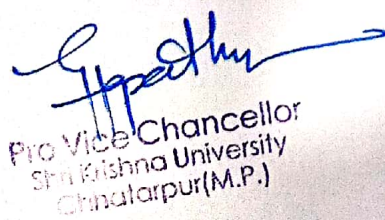 Pro Vice Chancellor
Shri Krishna University
Chhatarpur(M.P.)